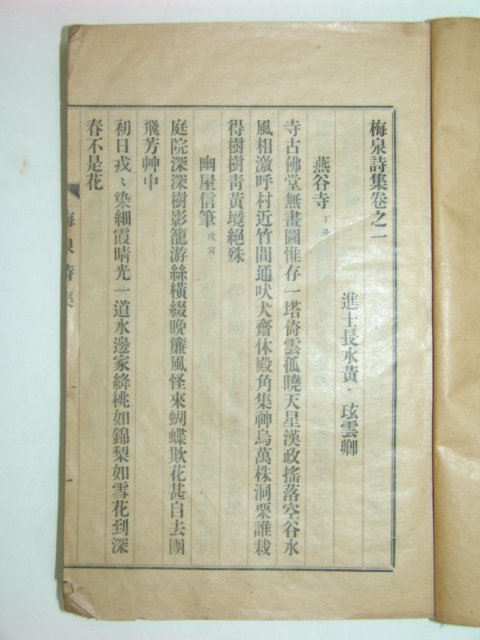 梅泉詩集卷之一
進士長水黃玹雲卿
燕谷寺 丁丑
寺古佛堂無畫圖惟存一塔倚雲孤曉天星漢政搖落空谷水
風相激呼村近竹間通吠犬齋休殿角集神烏萬株洞栗誰栽
得樹樹靑黃境絕殊
幽屋信筆 戊寅
庭院深深樹影籠游絲橫綴晚簾風怪來蝴蝶欺花甚白去團
飛芳艸中
初日戎〻染細霞晴光一道水邊家絳桃如錦梨如雪花到深
春不是花
梅泉詩集
一